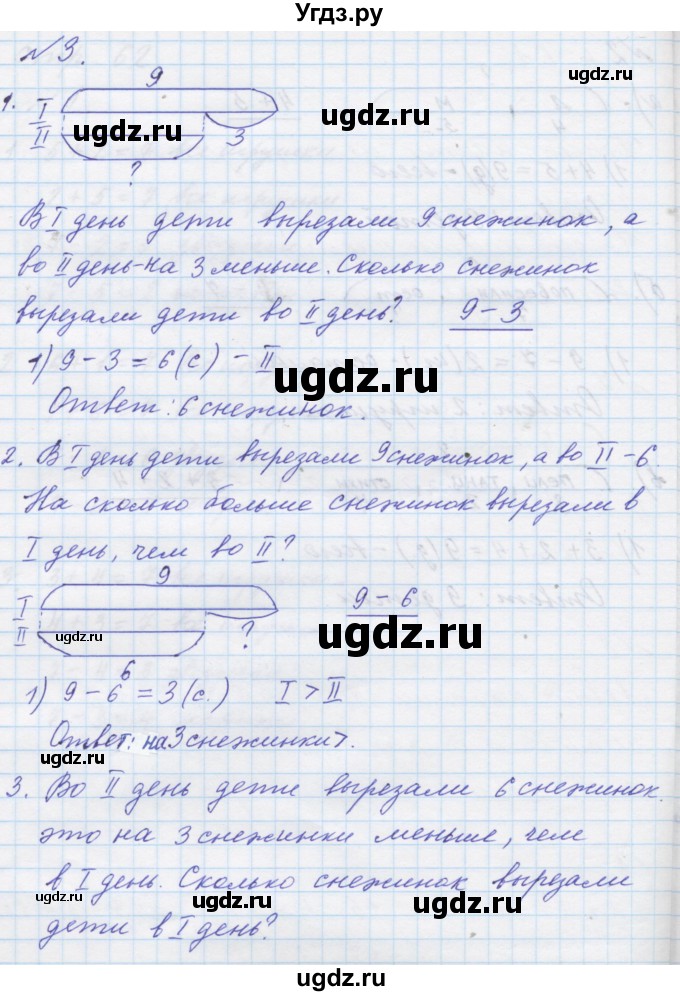 Угдз.ру
№ 3.
1. I 9
II 3
?
В I день дети вырезали 9 снежинок, а
во II день - на 3 меньше. Сколько снежинок
вырезали дети во II день? 9 - 3
1) 9 - 3 = 6 (с) - II
Ответ: 6 снежинок.
2. В I день дети вырезали 9 снежинок, а во II - 6.
На сколько больше снежинок вырезали в
I день, чем во II?
I 9 9 - 6
II ?
6
1) 9 - 6 = 3 (с.) I > II
Ответ: на 3 снежинки >.
3. Во II день дети вырезали 6 снежинок.
это на 3 снежинки меньше, чем
в I день. Сколько снежинок вырезали
дети в I день?
ugdz.ru
ugdz.ru
ugdz.ru
ugdz.ru
ugdz.ru
ugdz.ru
ugdz.ru
ugdz.ru
ugdz.ru
ugdz.ru